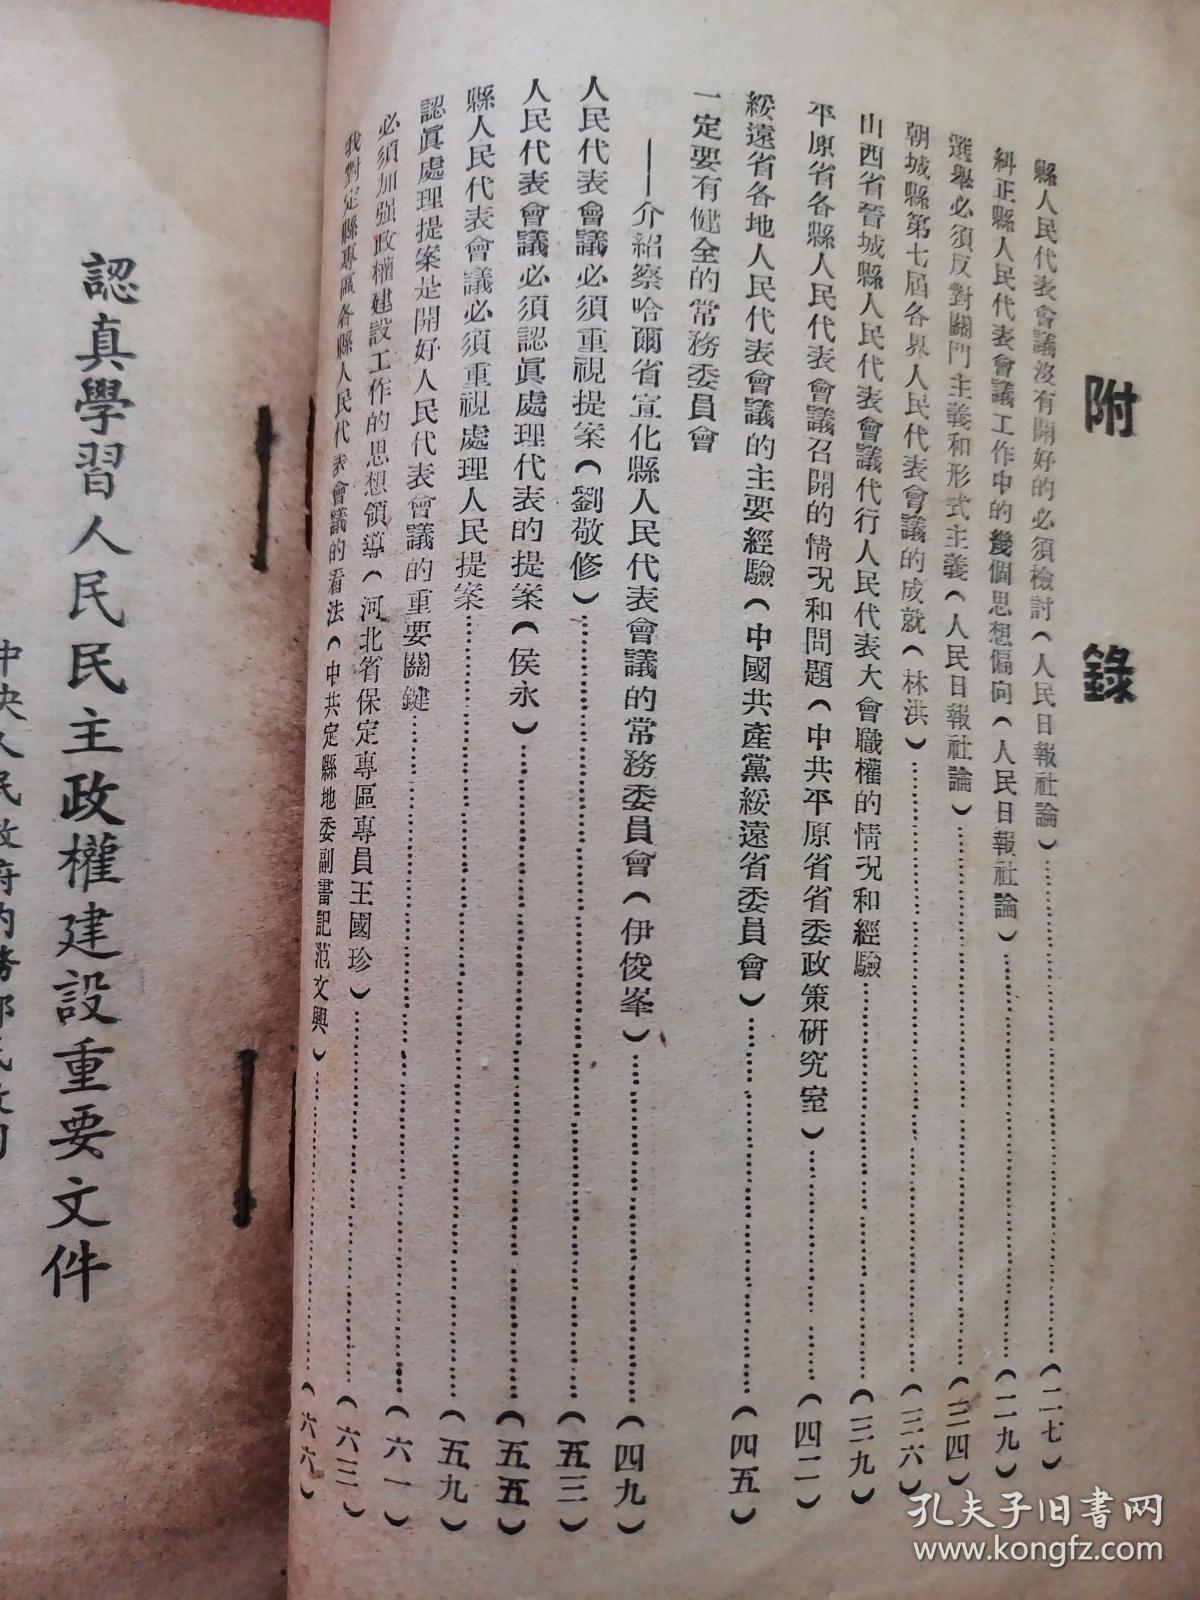 附錄
縣人民代表會議沒有開好的必須檢討(人民日報社論)……(二七)
糾正縣人民代表會議工作中的幾個思想偏向(人民日報社論)……(二九)
選舉必須反對關門主義和形式主義(人民日報社論)……(三四)
朝城縣第七屆各界人民代表會議的成就(林洪)……(三六)
山西省晉城縣人民代表會議代行人民代表大會職權的情况和經驗……(三九)
平原省各縣人民代表會議召開的情况和問題(中共平原省省委政策研究室)……(四二)
綏遠省各地人民代表會議的主要經驗(中國共產黨綏遠省委員會)……(四五)
一定要有健全的常務委員會
——介紹察哈爾省宣化縣人民代表會議的常務委員會(伊俊峯)……(四九)
人民代表會議必須重視提案(劉敬修)……(五三)
人民代表會議必須認眞處理代表的提案(侯永)……(五五)
縣人民代表會議必須重視處理人民提案……(五九)
認眞處理提案是開好人民代表會議的重要關鍵……(六一)
必須加强政權建設工作的思想領導(河北省保定專區專員王國珍)……(六三)
我對定縣專區各縣人民代表會議的看法(中共定縣地委副書記范文興)……(六六)
認真學習人民民主政權建設重要文件
中央人民政府內務部民政司
孔夫子旧书网
www.kongfz.com